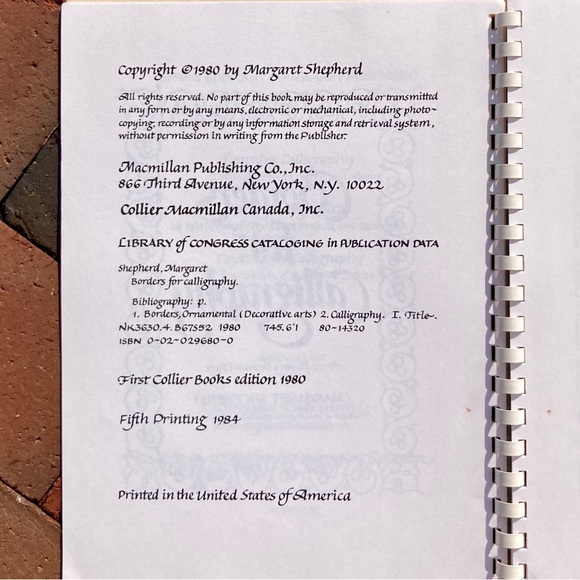 Copyright ©1980 by Margaret Shepherd
All rights reserved. No part of this book may be reproduced or transmitted
in any form or by any means, electronic or mechanical, including photo-
copying, recording or by any information storage and retrieval system,
without permission in writing from the Publisher.
Macmillan Publishing Co., Inc.
866 Third Avenue, New York, N.Y. 10022
Collier Macmillan Canada, Inc.
LIBRARY of CONGRESS CATALOGING in PUBLICATION DATA
Shepherd, Margaret
Borders for calligraphy.
Bibliography: p.
1. Borders, Ornamental (Decorative arts) 2. Calligraphy. I. Title.
NK3630.4.B67S52 1980 745.6'1 80-14320
ISBN 0-02-029680-0
First Collier Books edition 1980
Fifth Printing 1984
Printed in the United States of America